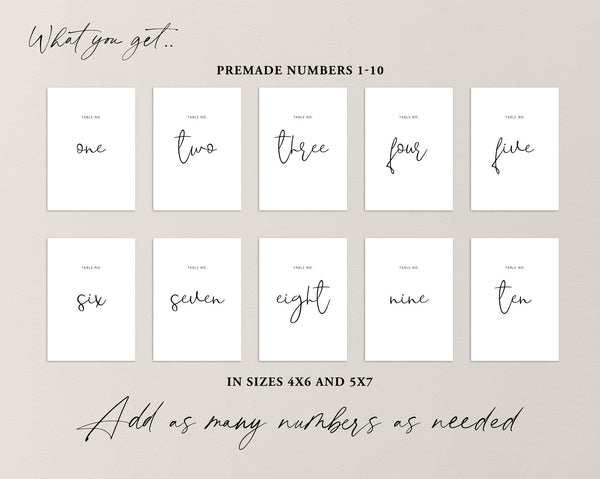 What you get..
PREMADE NUMBERS 1-10
TABLE NO.
one
TABLE NO.
two
TABLE NO.
three
TABLE NO.
four
TABLE NO.
five
TABLE NO.
six
TABLE NO.
seven
TABLE NO.
eight
TABLE NO.
nine
TABLE NO.
ten
IN SIZES 4X6 AND 5X7
Add as many numbers as needed